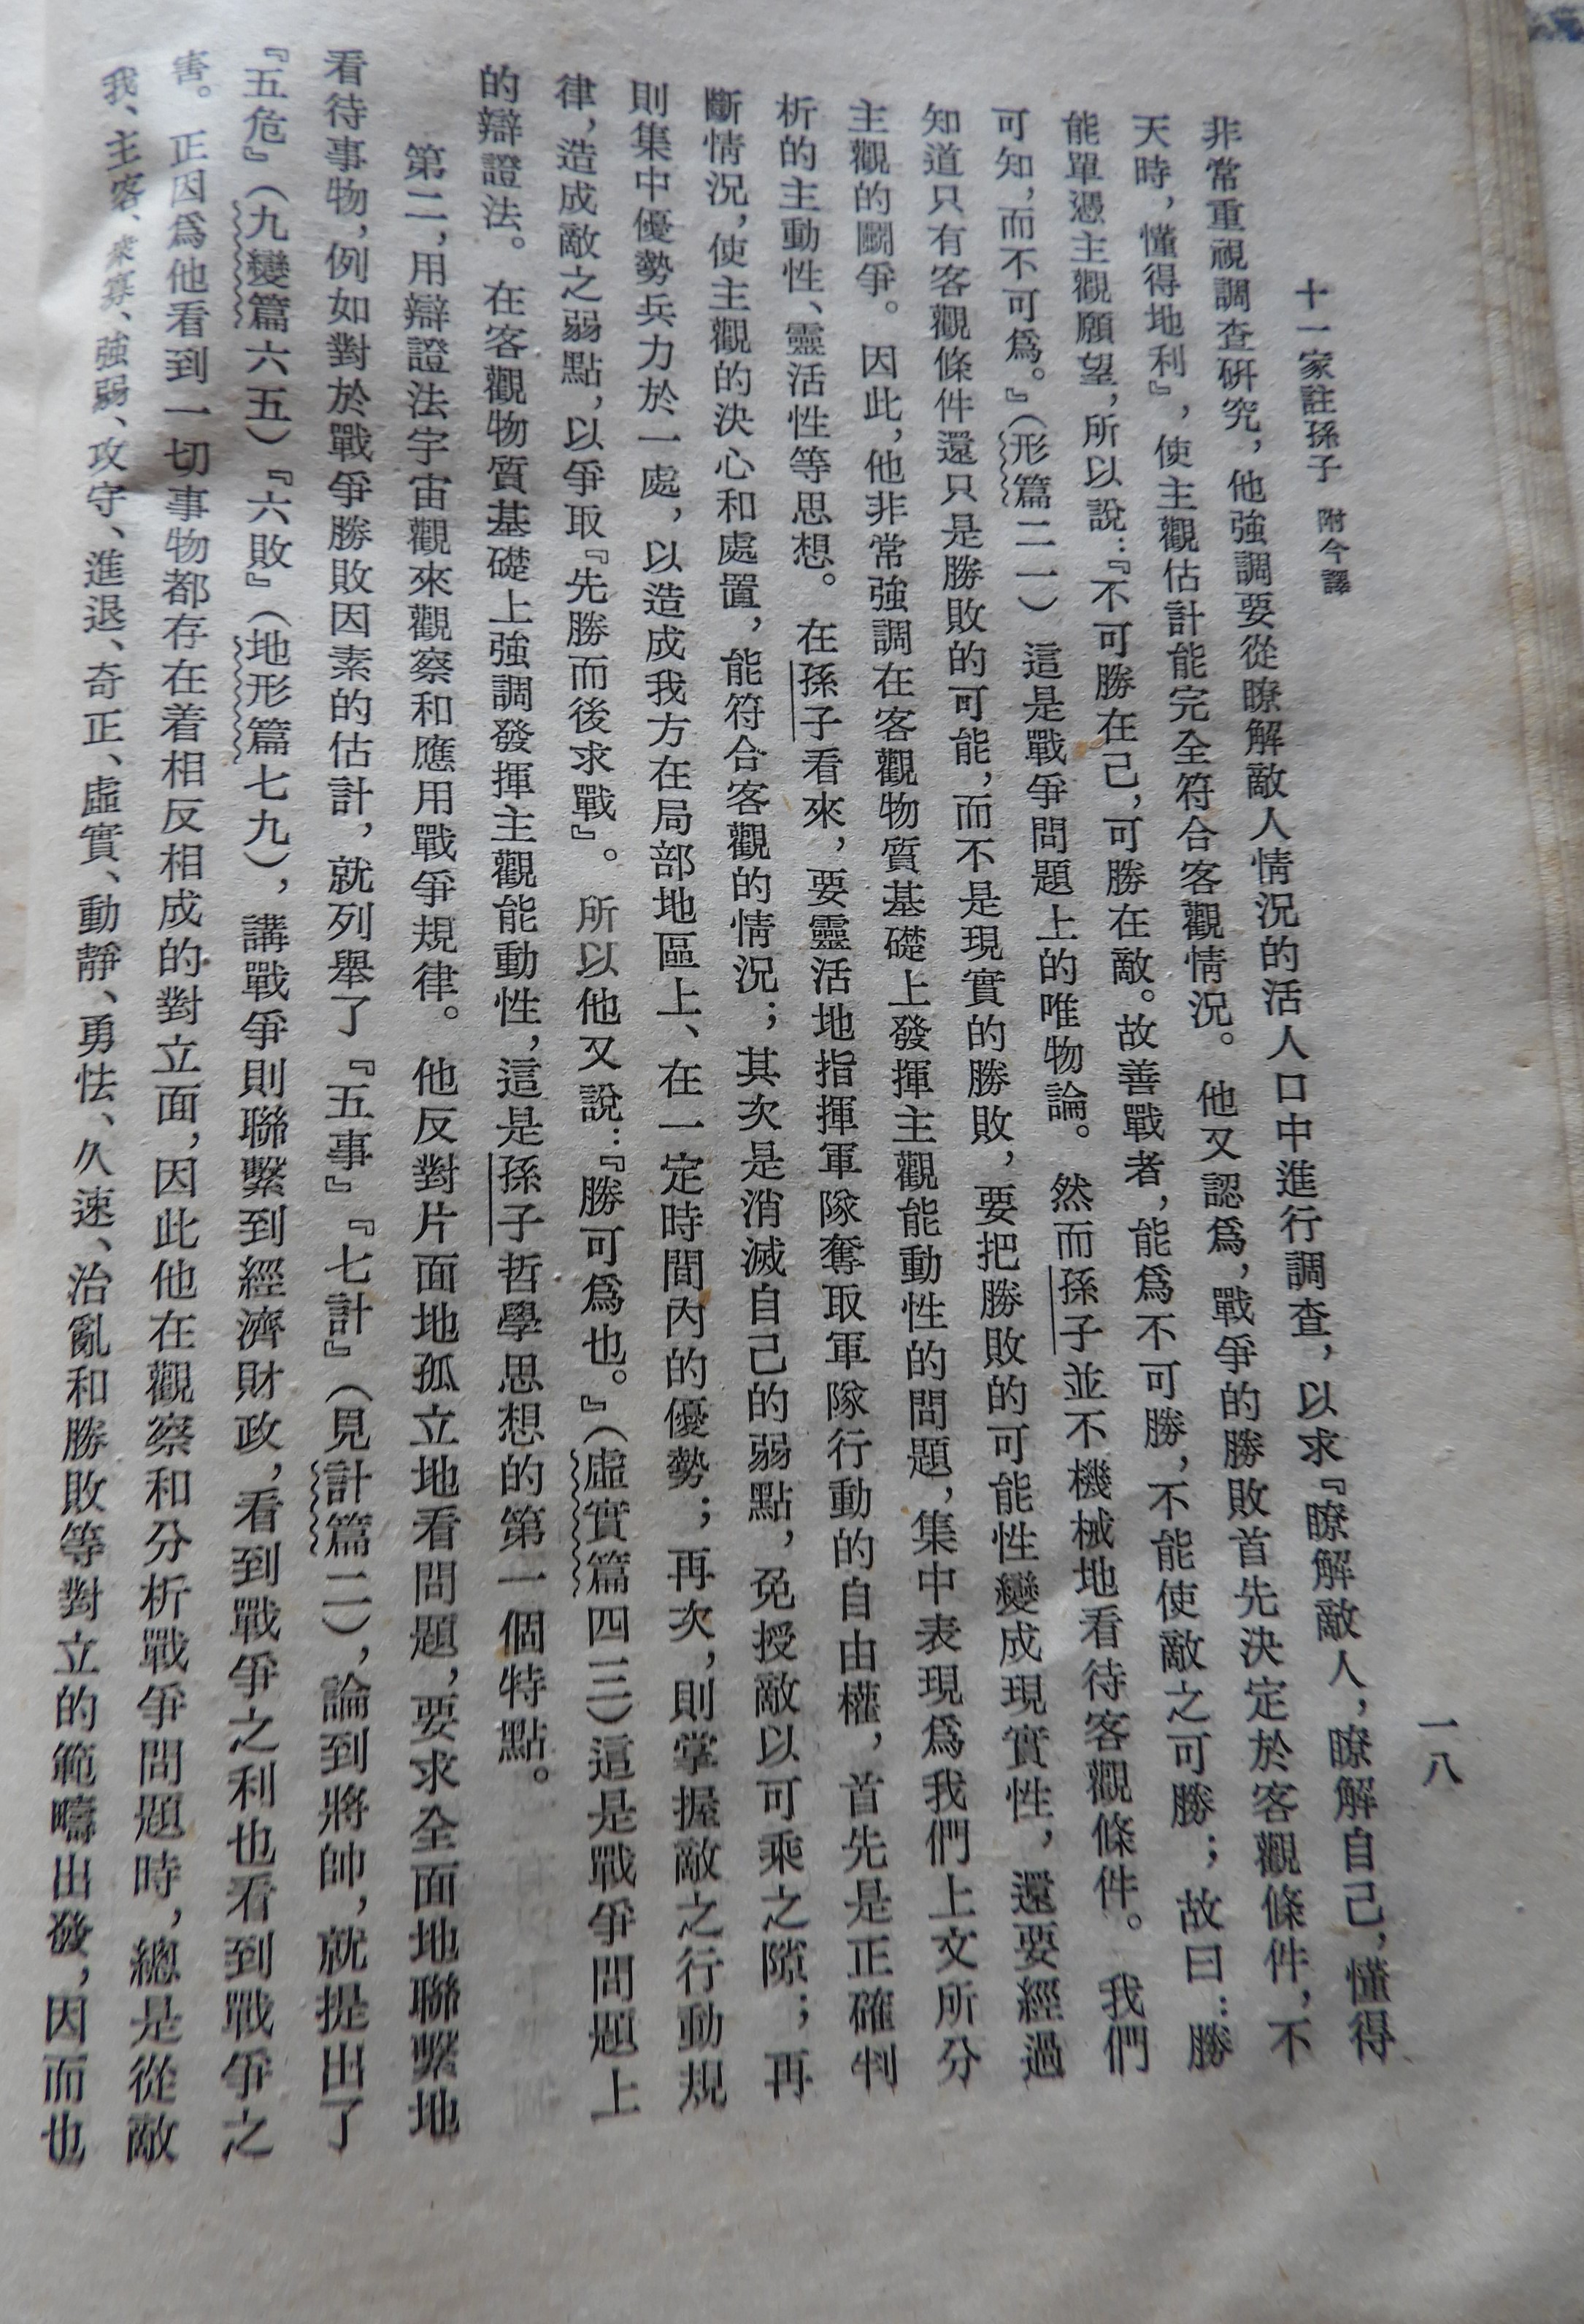 十一家註孫子 附今譯
一八
非常重視調查硏究，他強調要從瞭解敵人情況的活人口中進行調查，以求『瞭解敵人，瞭解自己，懂得
天時，懂得地利』，使主觀估計能完全符合客觀情況。他又認爲，戰爭的勝敗首先決定於客觀條件，不
能單憑主觀願望，所以說：『不可勝在己，可勝在敵。故善戰者，能爲不可勝，不能使敵之可勝；故曰：勝
可知，而不可爲。』（形篇二一）這是戰爭問題上的唯物論。然而孫子並不機械地看待客觀條件。我們
知道只有客觀條件還只是勝敗的可能，而不是現實的勝敗，要把勝敗的可能性變成現實性，還要經過
主觀的鬭爭。因此，他非常強調在客觀物質基礎上發揮主觀能動性的問題，集中表現爲我們上文所分
析的主動性、靈活性等思想。在孫子看來，要靈活地指揮軍隊奪取軍隊行動的自由權，首先是正確判
斷情況，使主觀的決心和處置，能符合客觀的情況；其次是消滅自己的弱點，免授敵以可乘之隙；再
則集中優勢兵力於一處，以造成我方在局部地區上、在一定時間內的優勢；再次，則掌握敵之行動規
律，造成敵之弱點，以爭取『先勝而後求戰』。所以他又說：『勝可爲也。』（虛實篇四三）這是戰爭問題上
的辯證法。在客觀物質基礎上強調發揮主觀能動性，這是孫子哲學思想的第一個特點。
第二，用辯證法宇宙觀來觀察和應用戰爭規律。他反對片面地孤立地看問題，要求全面地聯繫地
看待事物，例如對於戰爭勝敗因素的估計，就列舉了『五事』『七計』（見計篇二），論到將帥，就提出了
『五危』（九變篇六五）『六敗』（地形篇七九），講戰爭則聯繫到經濟財政，看到戰爭之利也看到戰爭之
害。正因爲他看到一切事物都存在着相反相成的對立面，因此他在觀察和分析戰爭問題時，總是從敵
我、主客、衆寡、強弱、攻守、進退、奇正、虛實、動靜、勇怯、久速、治亂和勝敗等對立的範疇出發，因而也